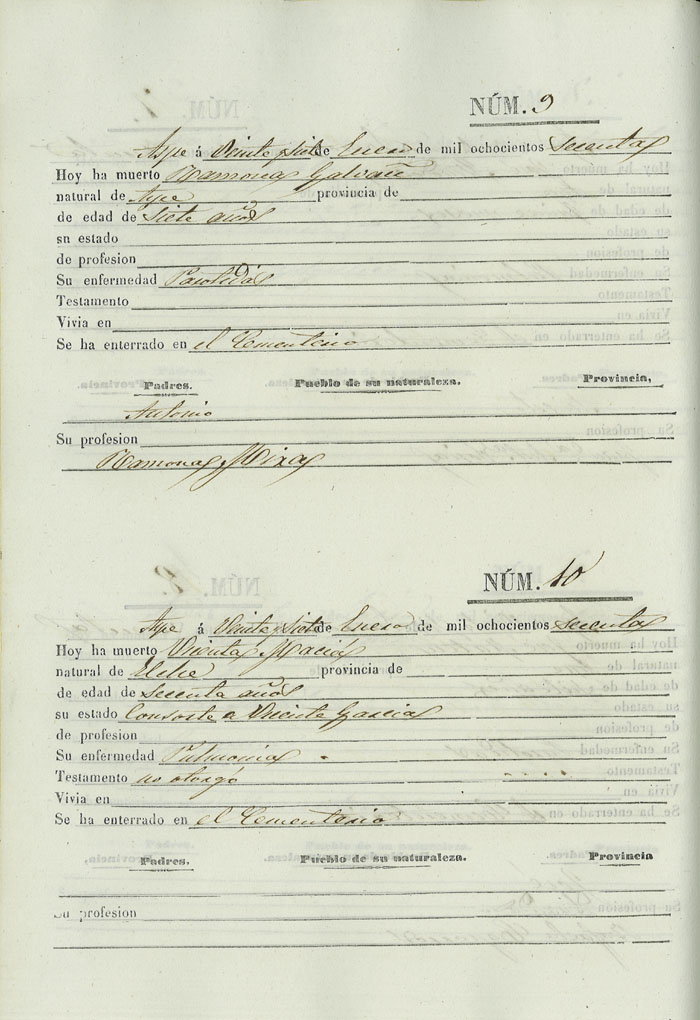 NÚM. 9
Aspe á Veinte y Siete de Enero de mil ochocientos Secenta
Hoy ha muerto Ramona Galvañ
natural de Aspe provincia de
de edad de Siete años
sn estado
de profesion
Su enfermedad
Testamento
Vivia en
Se ha enterrado en el Cementerio
Padres. Pueblo de su naturaleza. Provincia,
Antonio
Su profesion
Ramona Mira
NÚM. 10
Aspe á Veinte y Siete de Enero de mil ochocientos Secenta
Hoy ha muerto Vicenta Maciá
natural de Elche provincia de
de edad de Secenta años
su estado Consorte a Vicente Garcia
de profesion
Su enfermedad Pulmonia
Testamento no otorgó
Vivia en
Se ha enterrado en el Cementerio
Padres. Pueblo de su naturaleza. Provincia
Su profesion